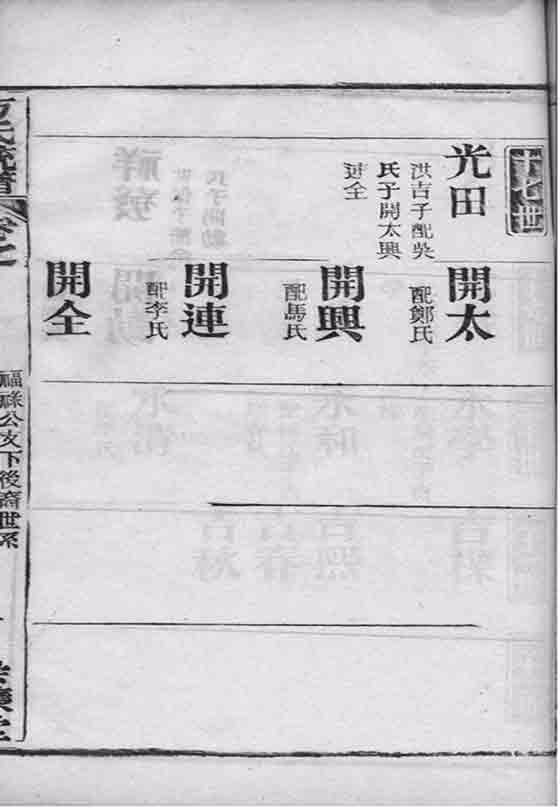 世
光田
洪吉子配吳
氏子開太興
連全
開太
配鄭氏
開興
配馬氏
開連
配李氏
開全
氏統譜
卷七
福祿公支下後裔世系